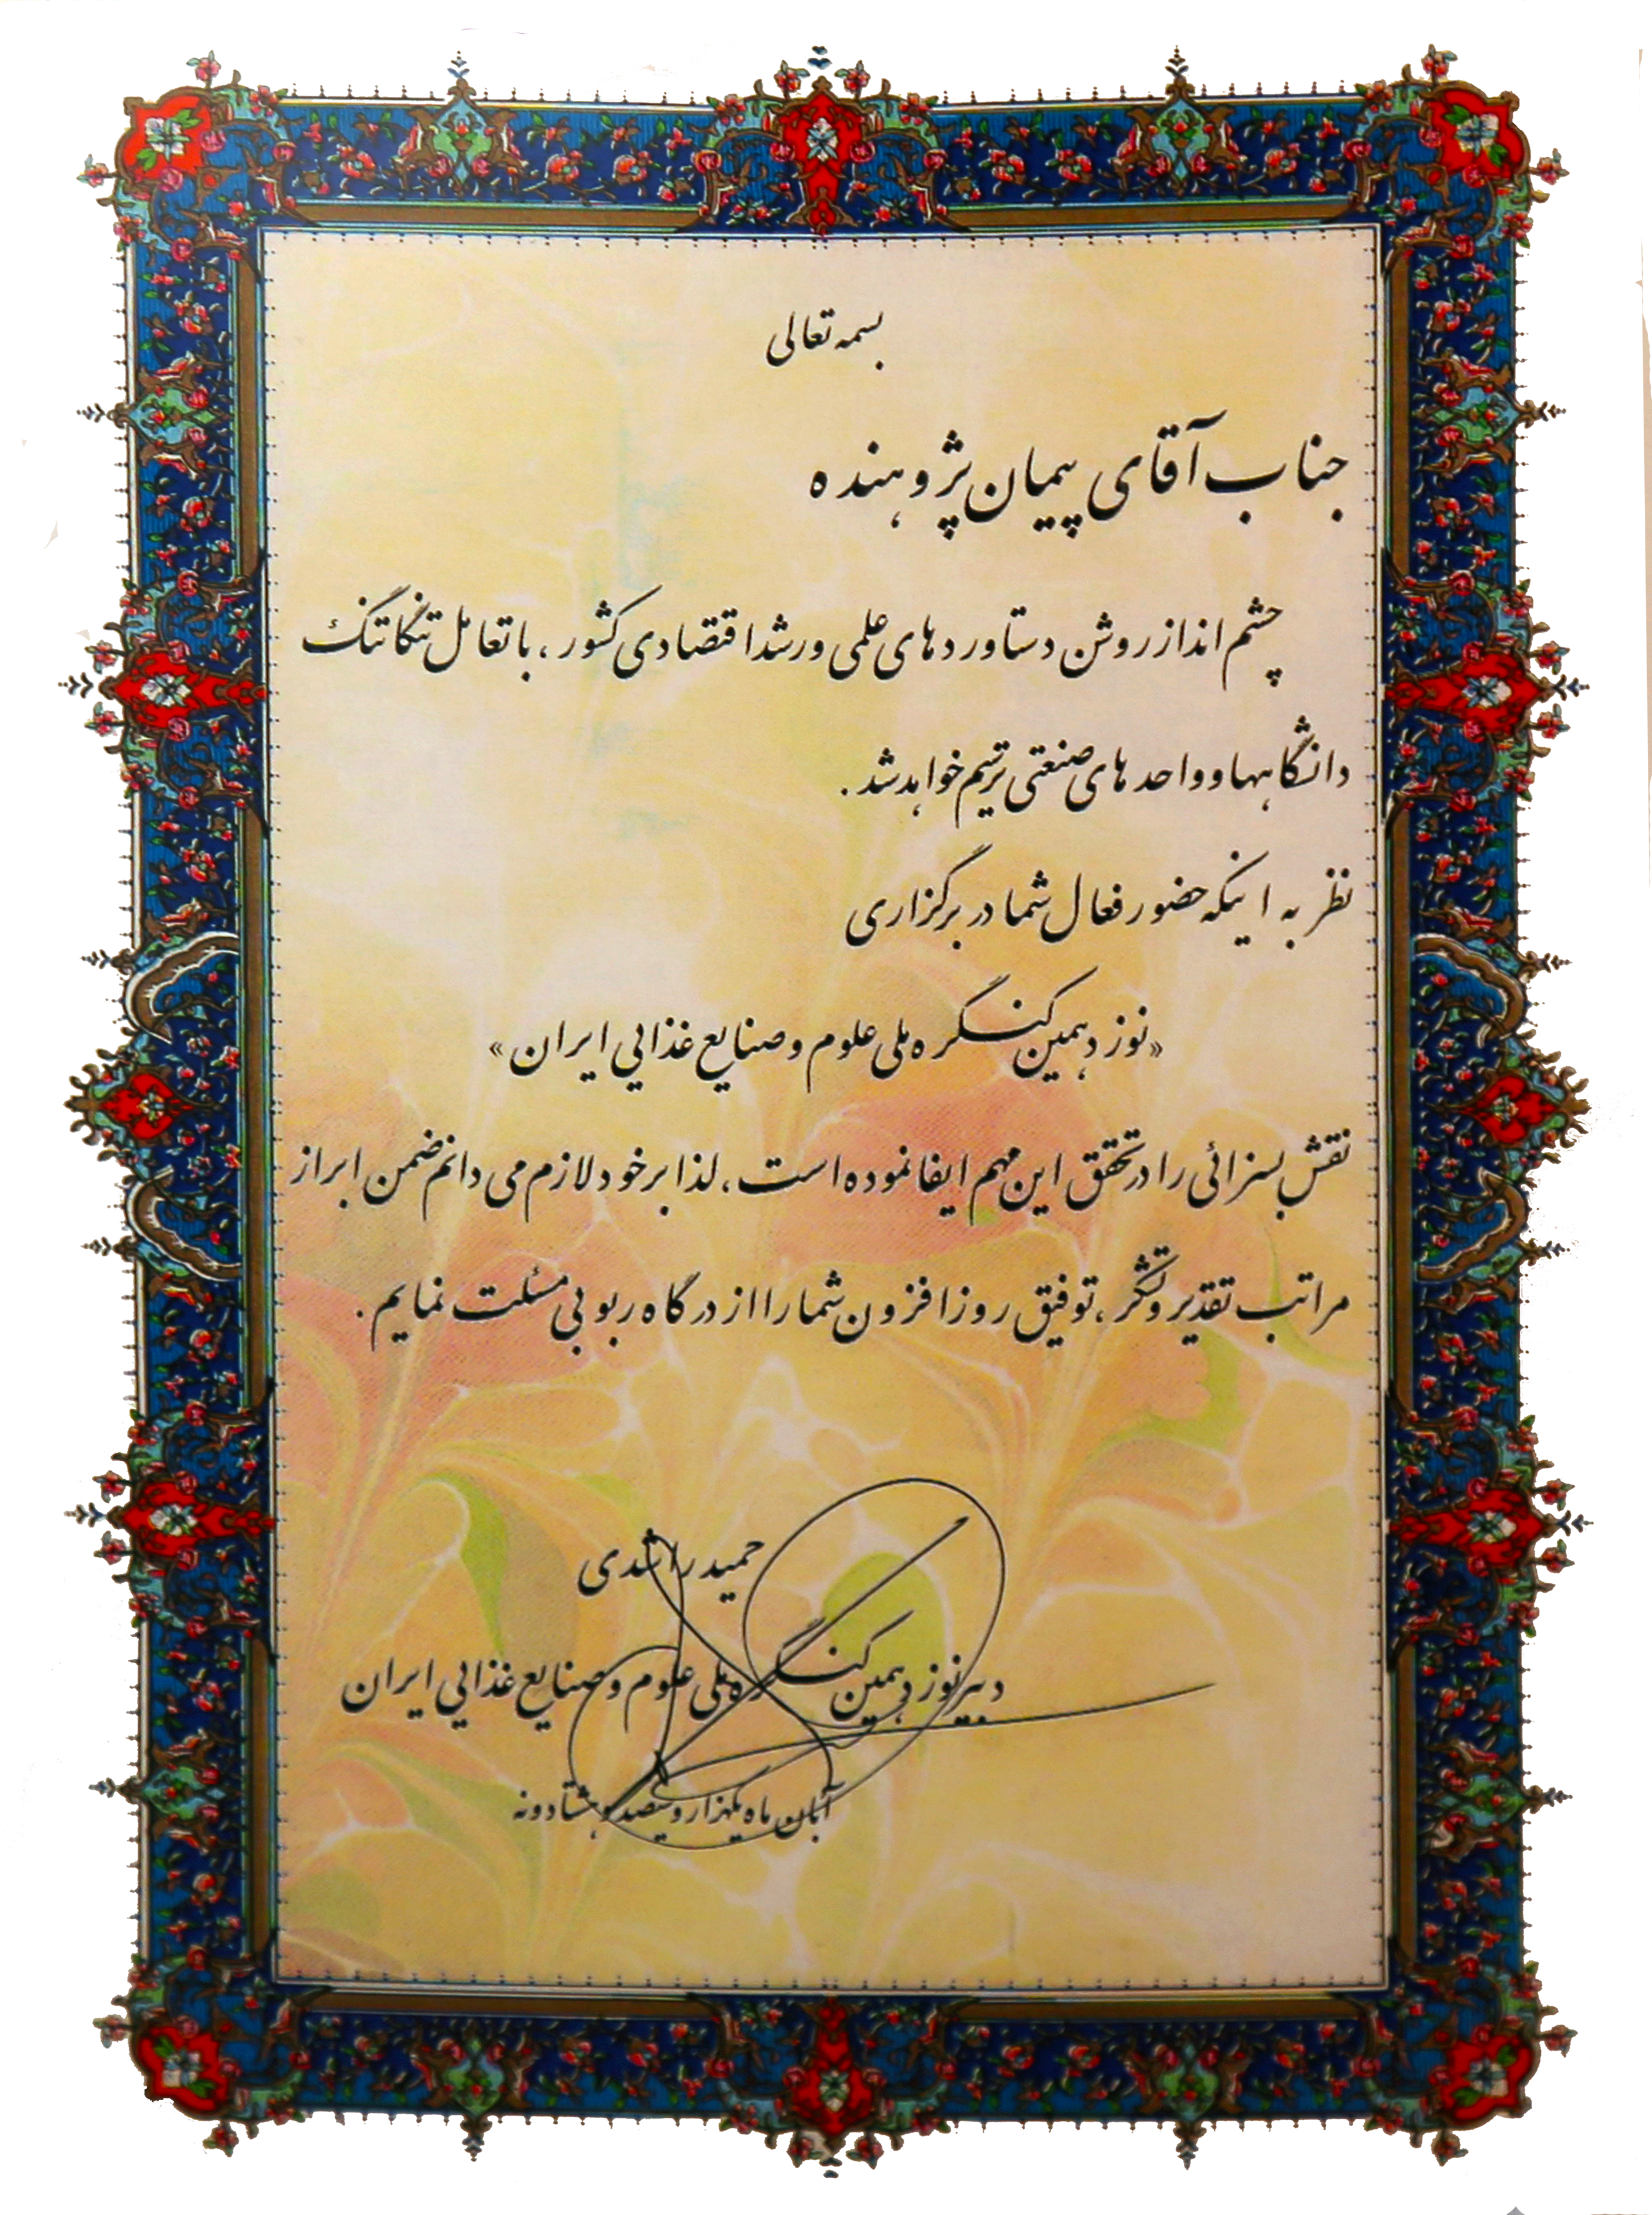 بسمه تعالی
جناب آقای پیمان پژوهنده
چشم انداز روشن دستاوردهای علمی و رشد اقتصادی کشور، با تعامل تنگاتنگ
دانشگاهها و واحدهای صنعتی ترسیم خواهد شد.
نظر به اینکه حضور فعال شما در برگزاری
«نوزدهمین کنگره ملی علوم و صنایع غذایی ایران»
نقش بسزائی را در تحقق این مهم ایفا نموده است، لذا بر خود لازم می دانم ضمن ابراز
مراتب تقدیر و تشکر، توفیق روزافزون شما را از درگاه ربوبی مسئلت نمایم.
حمید راشدی
دبیر نوزدهمین کنگره ملی علوم و صنایع غذایی ایران
آبان ماه یکهزار و سیصد و هشتاد و نه